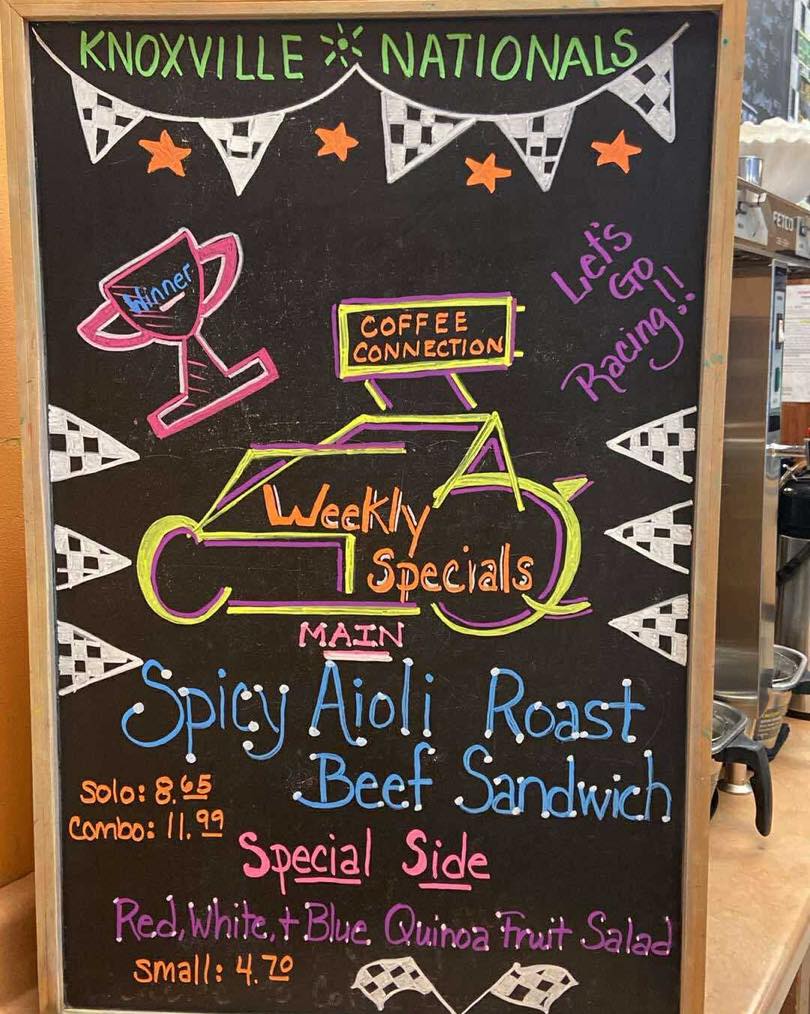 KNOXVILLE NATIONALS
Winner
Let's
Go
Racing!!
COFFEE
CONNECTION
Weekly
Specials
MAIN
Spicy Aioli Roast
Beef Sandwich
Solo: 8.65
Combo: 11.99
Special Side
Red, White, + Blue Quinoa Fruit Salad
Small: 4.70
FETCO